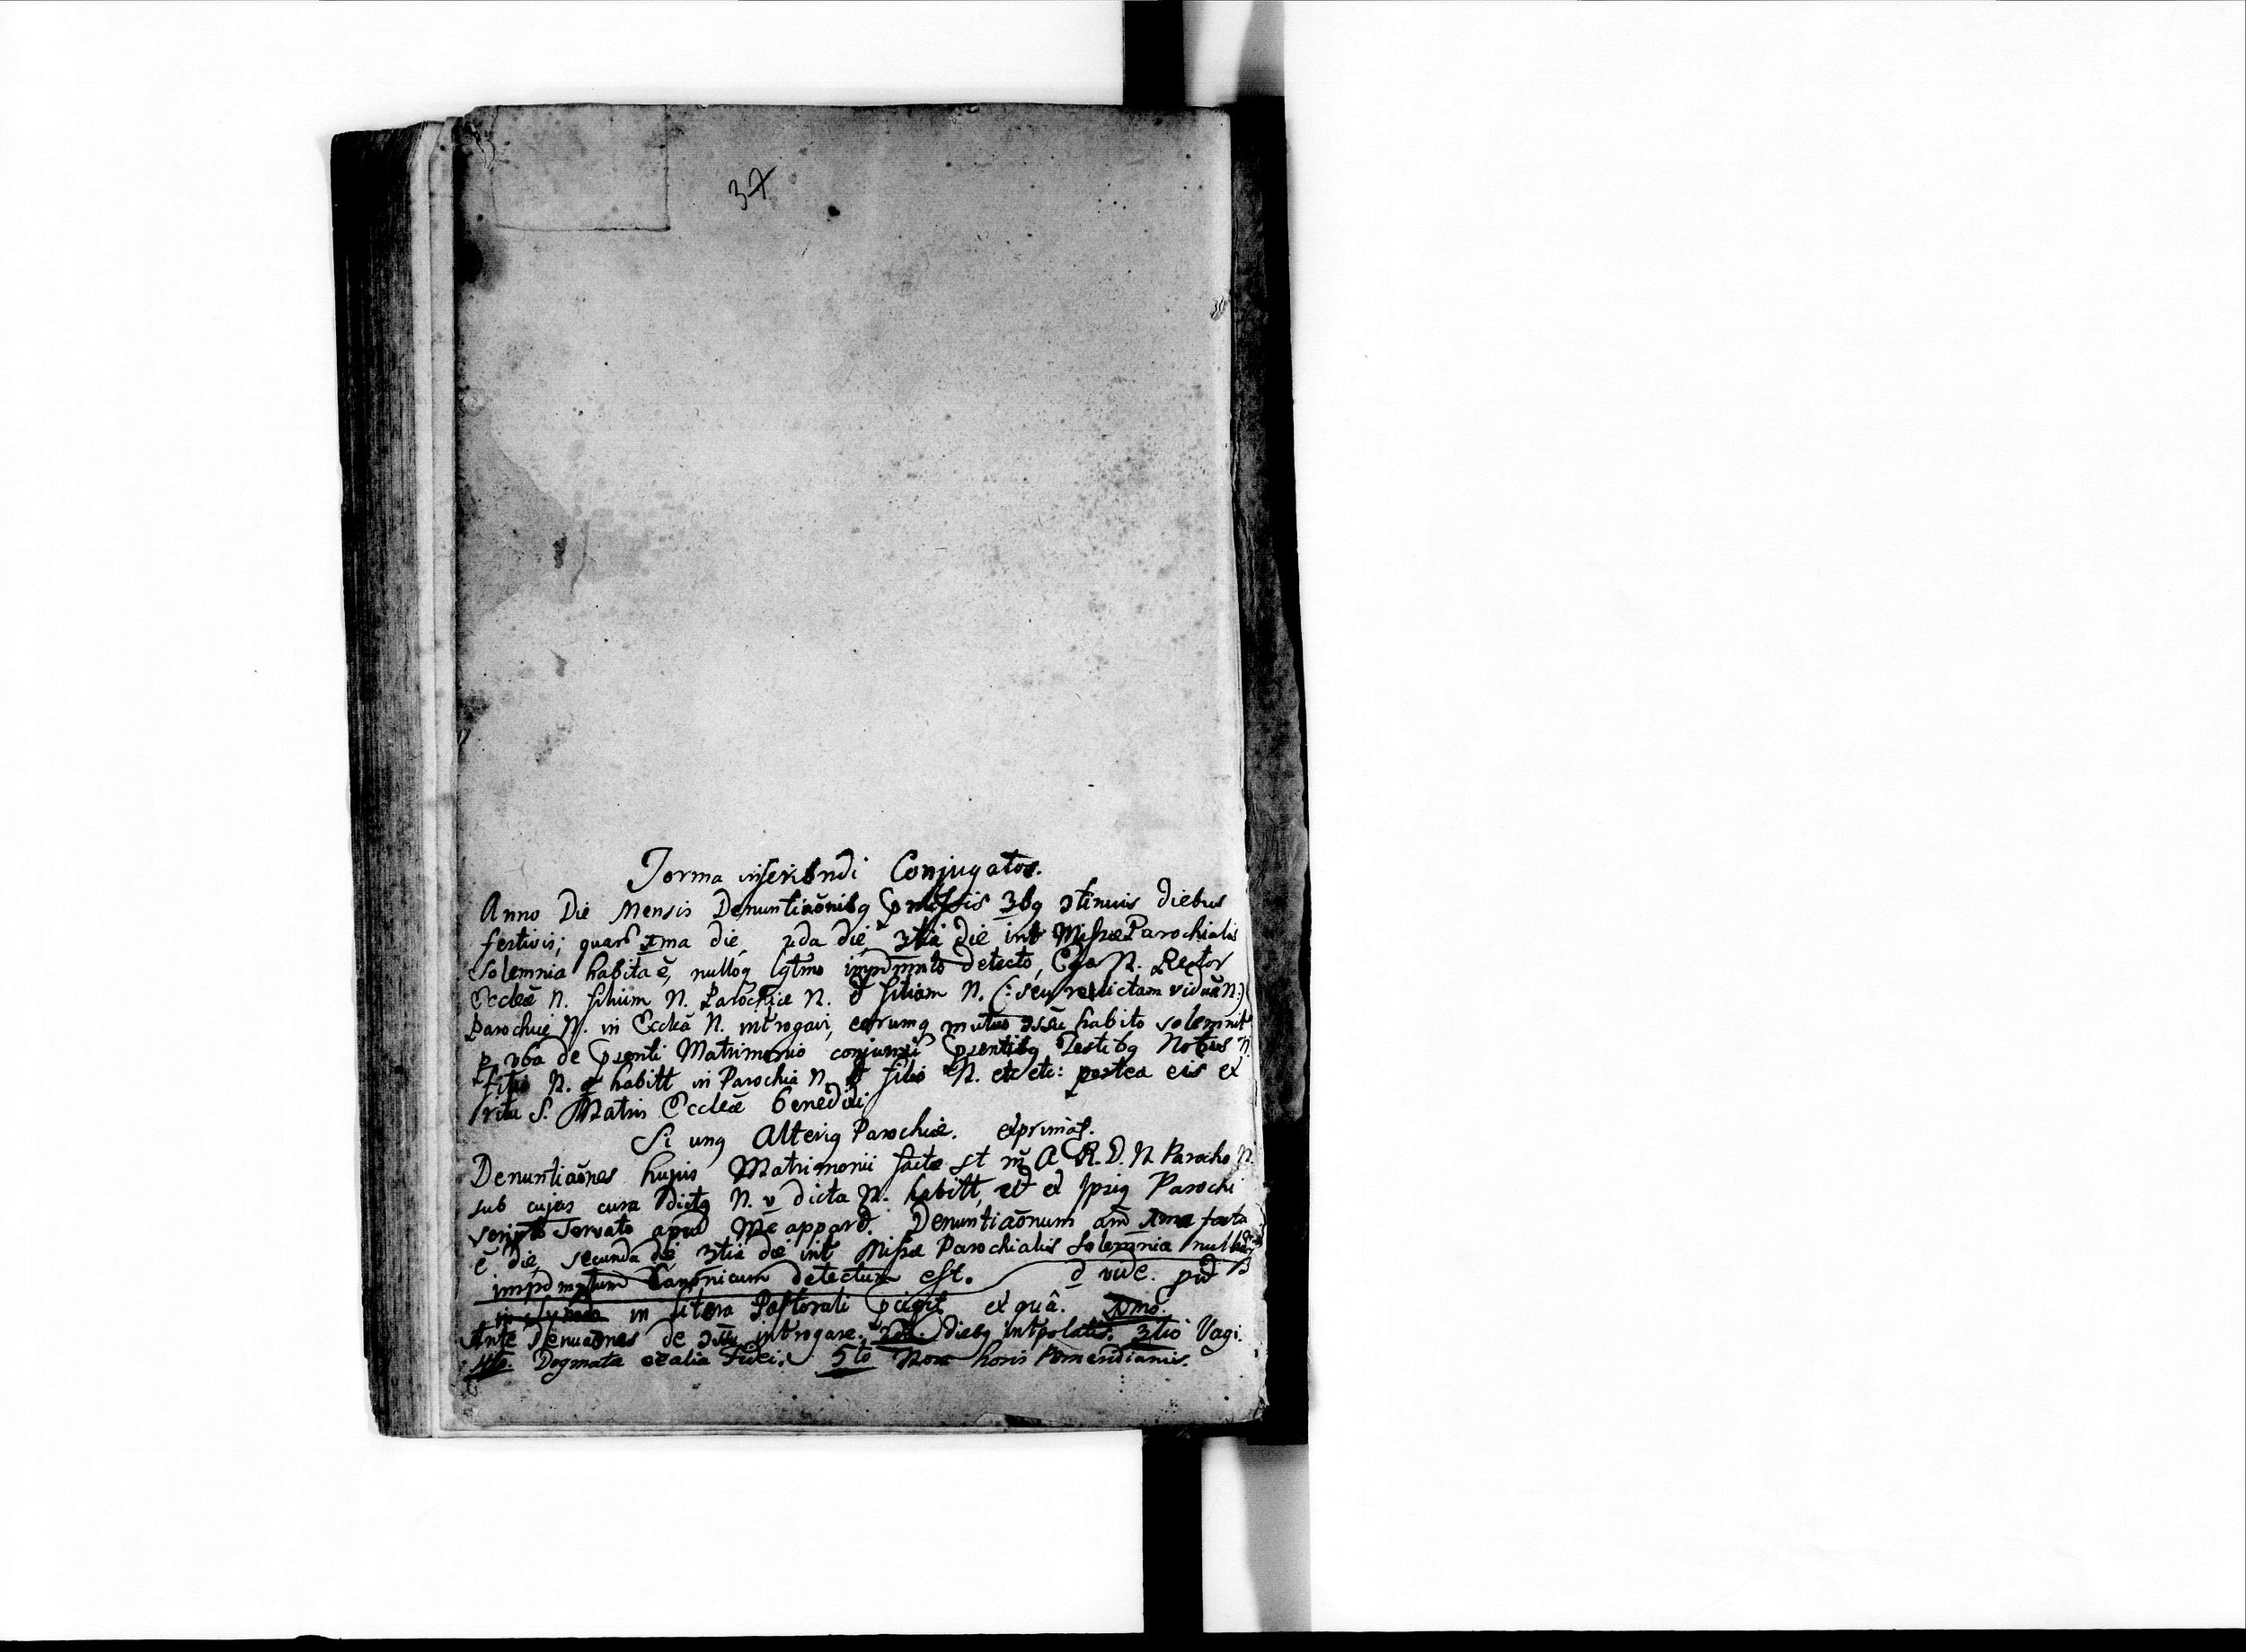 37
Forma inscribendi Conjugatos.
Anno Die Mensis Denuntiaōnibq pmissis 3bq ɔtinuis diebus
festivis; quar 1ma die, 2da die, 3tia die int Missæ Parochialis
Solemnia habita ē, nulloq lgtmo impdmnto detecto, Ego N. Rector
Eccleæ N. filium N. Parochiæ N. et filiam N. (: seu relictam viduā N:)
Parochiæ N. in Ecclēa N. introgavi, eorumq mutuo ɔssu habito solemnit
p vba de psenti Matrimonio conjunxi psentibq Testibq Notis N.
filio N. q habitt in Parochia N. et filio N. etc etc: postea eis ex
ritu S. Matris Eccleæ benedixi
Si unq Alteriq Parochiæ. exprimat.
Denuntiaōnes hujus Matrimonii factæ st A R. D. N Parocho N.
sub cujus cura dictq N. v dicta N. habitt, et ex ipsiq Parochi
scripto servato apud Me apparet. Denuntiaōnum 1ma facta
ē die, secunda die 3tia die int Missæ Parochialis Solemnia
impdmntum Canonicum detectum est. vide.
in litera Pastorali pcipit ex quâ. 1mo.
Ante Denuaōnes de ɔssu introgare. 2do. diebq intpolatis. 3tio Vagi.
4to. Dogmata et alia Fidei. 5to Non horis Pomeridianis.